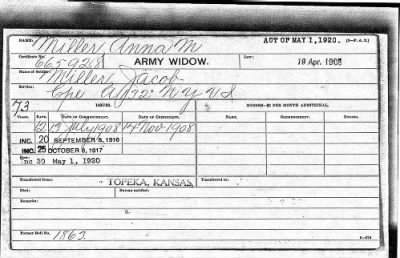 ACT OF MAY 1, 1920.
NAME: Miller, Anna M
Certificate No. 665928 ARMY WIDOW. Law: 19 Apr. 1908
Name of Soldier: Miller Jacob
Service: Cpl A, 32" N Y V I
73 ISSUES. MINORS—$2 PER MONTH ADDITIONAL.
CLASS. RATE. DATE OF COMMENCEMENT. DATE OF CERTIFICATE. NAME. COMMENCEMENT. ENDING.
12 13 July 1908 14 Nov 1908
INC. 20 SEPTEMBER 8, 1916
INC. 25 OCTOBER 6, 1917
30 May 1, 1920
Transferred from: TOPEKA, KANSAS, Transferred to:
Died: Bureau notified:
Remarks:
Former Roll No. 1863.